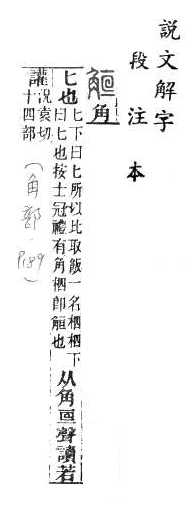 說文解字
段注本
角
匕也匕下曰匕所以比取飯一名柶柶下
曰匕也按士冠禮有角柶卽也从角亘聲讀若
讙況袁切
十四部
(角部．P.189)